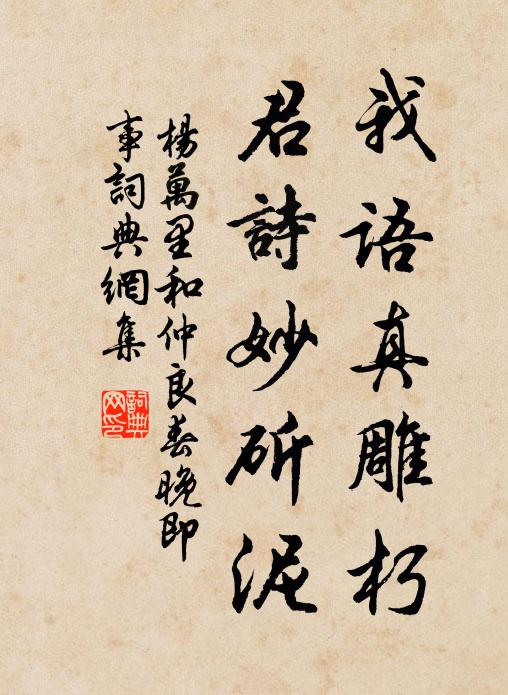 我語真雕朽
君詩妙斫泥
楊萬里和仲良春晚即
事詞典網集
詞典
网印